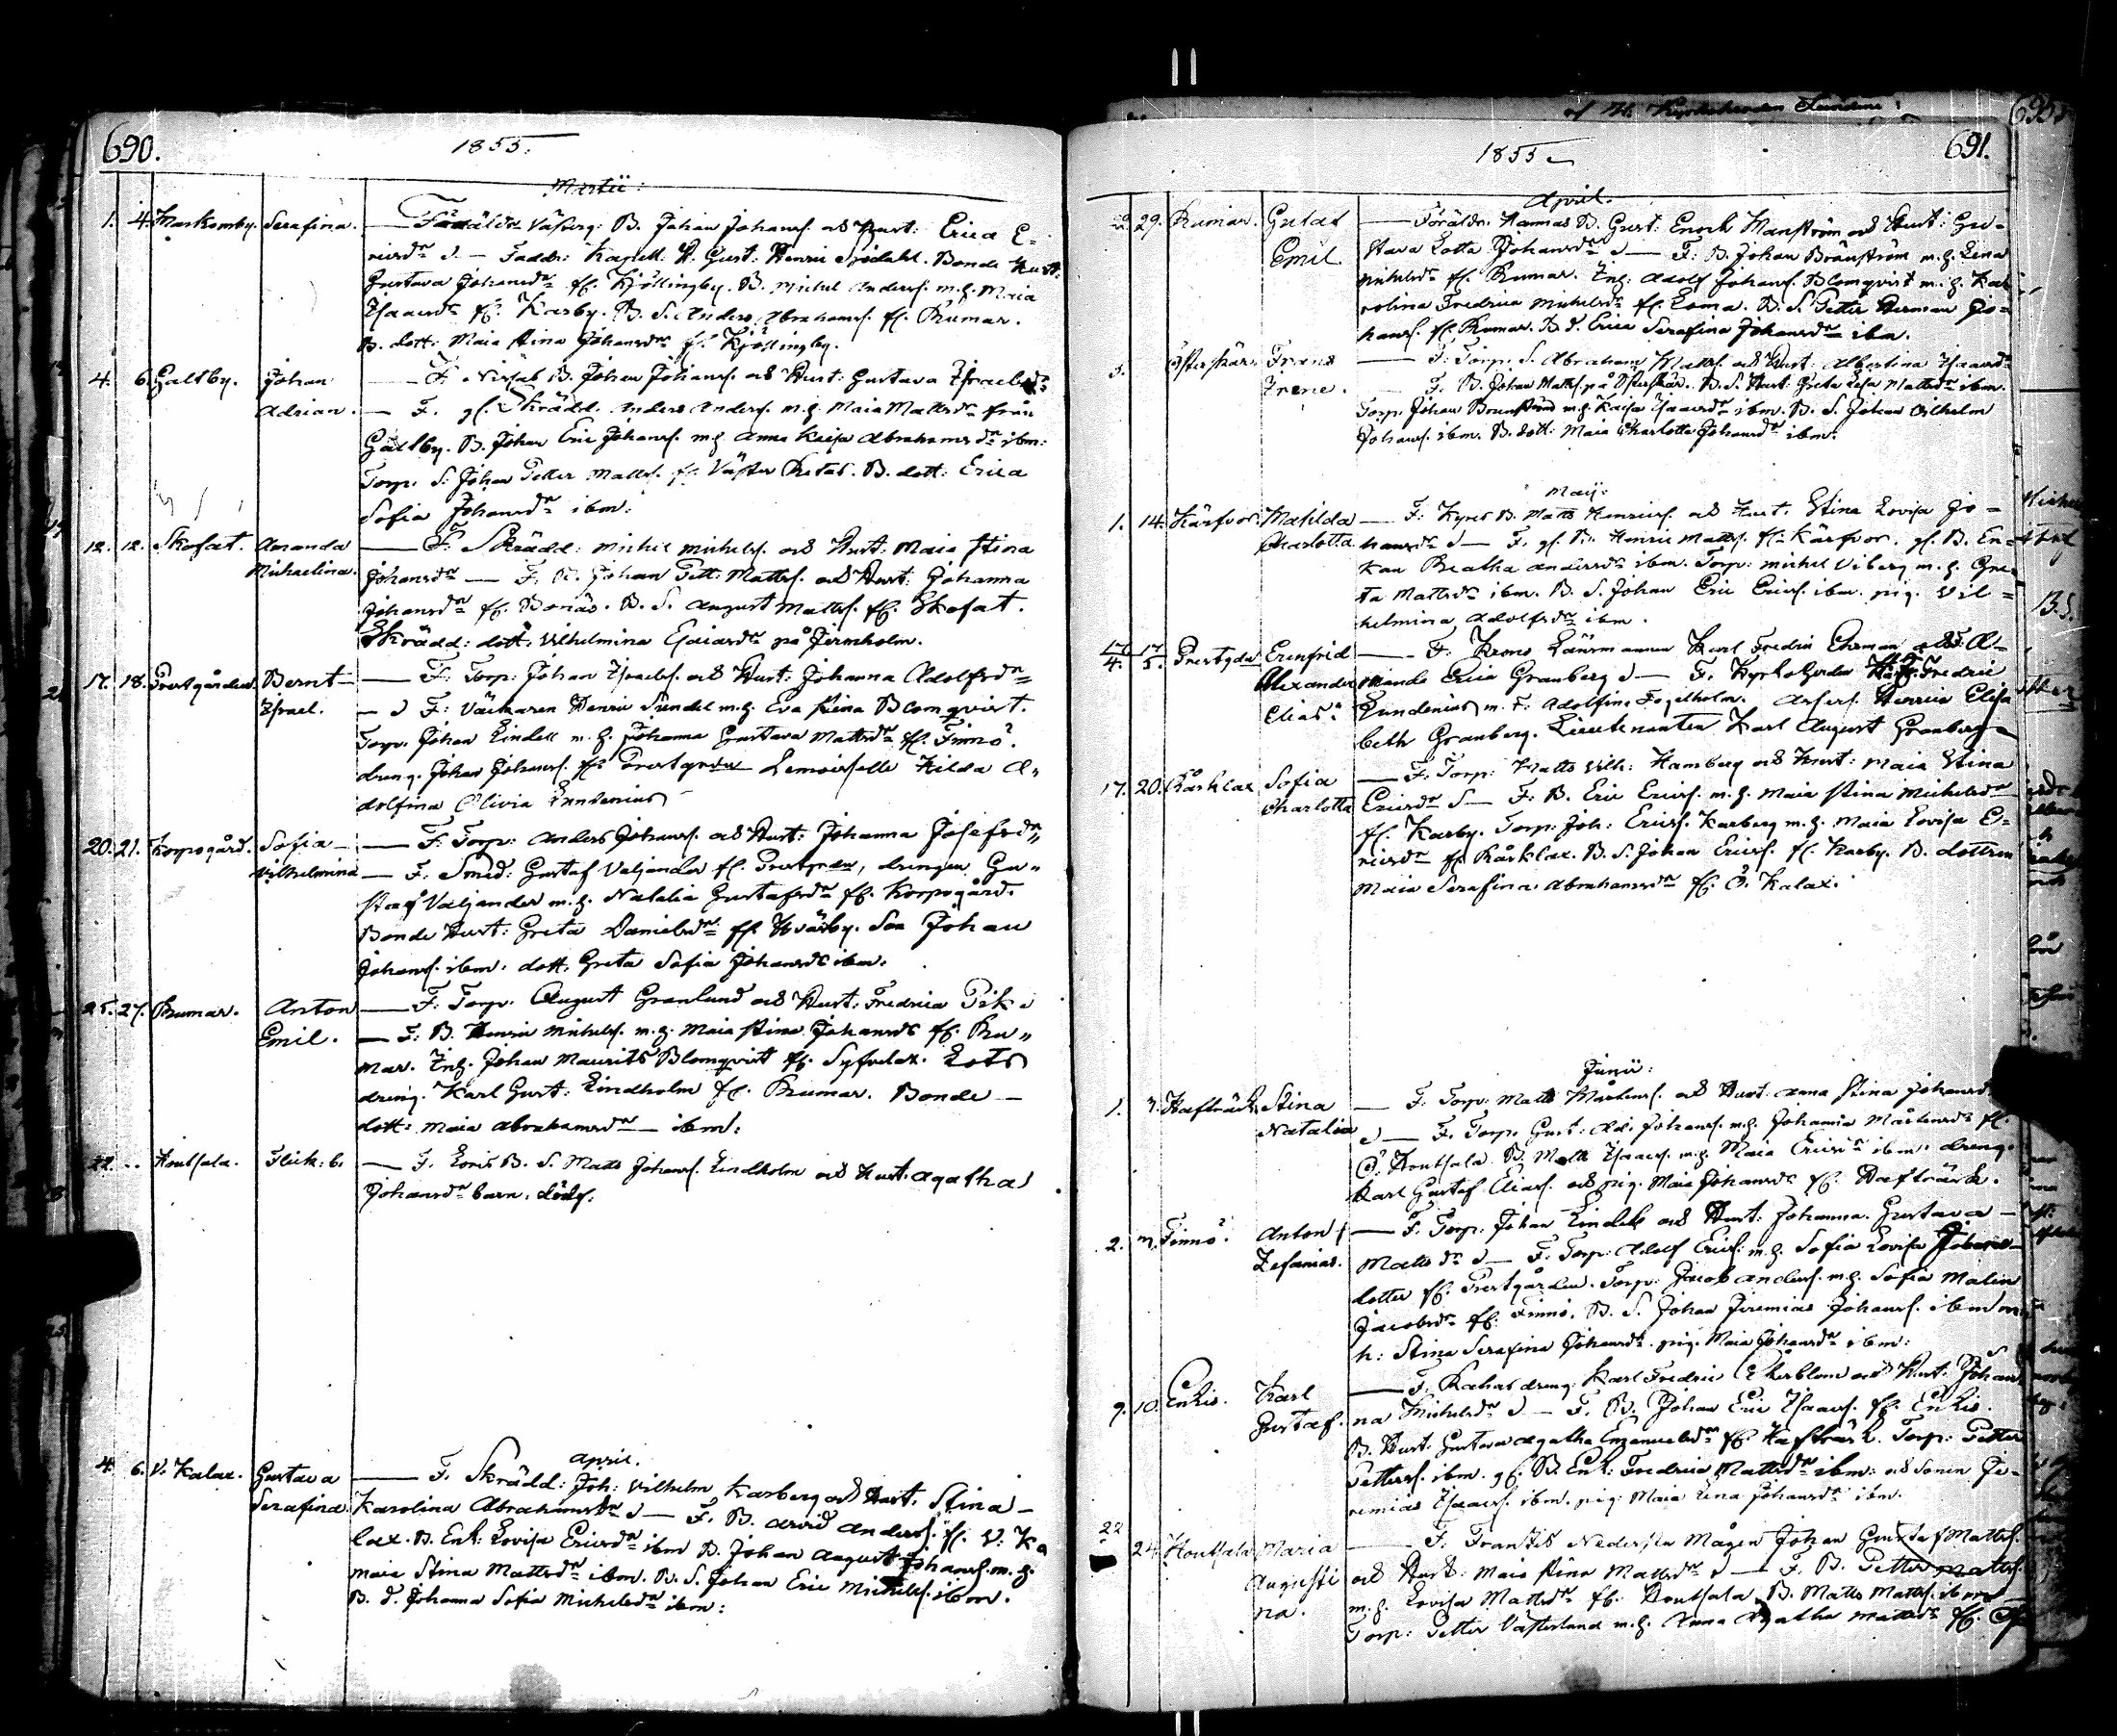 690.
1855.
Martii:
1. 4. Markomby. Serafina. — Föräldr. B. Johan Johans. och Hust: Erica E-
ricsdr — Faddr: Kapell: H. Gust: Henric Bonde Hust:
Gustava Johansdr fr. Kjöllingby. B. Michel Anders. m.h. Maia
Isaacsdr fr. Karby. B. S. Anders Abrahams. fr. Rumar.
B. dott: Maia Stina Johansdr fr. Kjöllingby.
4. 6. Galtby. Johan — F. B. Johan Johans. och Hust: Gustava Israelsdr
Adrian. — F. Skrädd. Anders Anders. m.h. Maia Mattsdr från
Galtby. B. Johan Eric Johans. m.h. Anna Kaisa Abrahamsdr ibm:
Torp. S. Johan Petter Matts. fr. Väster Retais. B. dott: Erica
Sofia Johansdr ibm:
12. 12. Skofat. Amanda — F. Skrädd: Michel Michels. och Hust: Maia Stina
Michaelina. Johansdr — F. B. Johan Pett: Matts. och Hust: Johanna
Johansdr fr. Bonäs. B. S. August Matts. fr. Skofat.
Skrädd: dott. Vilhelmina Esaiasdr på Jermholm.
17. 18. Prestgården Bernt — F. Torp: Johan Israels. och Hust: Johanna Adolfsdr
Israel. — F. Henric Sundel m.h. Eva Stina Blomqvist.
Torp. Johan Lindell m.h. Johanna Gustava Mattsdr fr. Finnö.
dreng. Johan Johans. fr. Prestgrdn Demoiselle Hilda A-
dolfina Olivia Lundenius
20. 21. Korpogård. Sofia — F. Torp: Anders Johans. och Hust: Johanna Josefsdr
Vilhelmina — F. Smed: Gustaf Valjander fr. Prestgrdn, drengen Gu-
staf Valjander m.h. Natalia Gustafsdr fr. Korpogård.
Bonde Hust: Greta Danielsdr fr. Hväsby. Son Johan
Johans. ibm. dott. Greta Sofia Johansdr ibm.
25. 27. Rumar. Anton — F. Torp. August Granlund och Hust: Fredrica Pik
Emil. — F: B. Henric Michels. m.h. Maia Stina Johansdr fr. Ru-
mar. Johan Maurits Blomqvist fr. Syfvelax. Lots
dreng. Karl Gust: Lindholm fr. Rumar. Bonde —
dott: Maia Abrahamsdr — ibm:
22. .. Houtsala. Flick: b. — F. B. S. Matts Johans. Lindholm och Hust. Agatha
Johansdr barn, dödf.
April.
4. 6. V. Kalax. Gustava — F. Skrädd: Joh: Vilhelm Karberg och Hust. Stina
Serafina. Karolina Abrahamsdr — F. B. Arvid Anders. fr. V: Ka
lax. B. Enk. Lovisa Ericsdr ibm B. Johan August Johans. m.h.
Maia Stina Mattsdr ibm. B. S. Johan Eric Michels. ibm.
B. d. Johanna Sofia Michelsdr ibm:
1855
691.
April.
29. Rumar. Gustaf — Föräldr. B. Gust: Enoch Manström och Hust: Gu-
Emil. stava Lotta Johansdr — F. B. Johan Brunström m.h. Lena
Michelsdr fr. Rumar. Adolf Johans. Blomqvist m.h. Ka-
rolina Fredrica Michelsdr fr. B. S. Petter Herman Jo-
hans. fr. Rumar. B. d. Erica Serafina Johansdr ibm.
3. Österskär. Frans — F. Torp. S. Abraham Matts. och Hust: Albertina Isaacsdr
Irene. — F. B. Johan Matts. på Österskär. B. S. Hust: Greta Lisa Mattsdr ibm.
Torp. Johan Brunström m.h. Kaisa Isaacsdr ibm. B. S. Johan Vilhelm
Johans. ibm. B. dott: Maia Charlotta Johansdr ibm.
Maij:
1. 14. Kärfvor. Matilda — F: B. Matts Henrics. och Hust. Stina Lovisa Jo-
Charlotta. hansdr — F. B. Henric Matts. fr. Kärfvor. B. En-
kan Beatha Andersdr ibm. Torp: Michel Viberg m.h. Gre-
ta Mattsdr ibm. B. S. Johan Eric Erics. ibm. pig. Vil-
helmina Adolfsdr ibm.
17/4. 17/5. Prestgdn Erenfrid — F. Krono Länsmannen Karl Fredric Ehrman och F. A-
Alexander manda Erica Granberg — F. Kyrkoherden Fredric
Elias. Lundenius m. F. Adolfina Fogelholm. Henrica Elisa
beth Granberg. Lieutenanten Karl August Granberg
17. 20. Rårklax Sofia — F. Torp: Matts Vilh: Hamberg och Hust: Maia Stina
Charlotta Ericsdr — F. B. Eric Erics. m.h. Maia Stina Michelsdr
fr. Karby. Torp: Joh: Erics. Karberg m.h. Maia Lovisa E-
ricsdr fr. Rårklax. B. S. Johan Erics. fr. Karby. B. dottren
Maia Serafina Abrahamsdr fr. Ö. Kalax.
Junii:
1. 3. Hafträsk. Stina — F. Torp: Matts Mårtens. och Hust: Anna Stina Johansd
Natalia — F. Torp. Gust: Adi. Johans. m.h. Johanna Mårtensdr fr.
Ö. Houtsala. B. Matts Isaacs. m.h. Maia Ericsdr ibm: dreng.
Karl Gustaf Elias. och pig. Maia Johansdr fr. Hafträsk.
2. 3. Finnö. Anton — F. Torp. Johan Lindell och Hust: Johanna Gustava
Zefanias. Mattsdr — F. Torp: Adolf Erics. m.h. Sofia Lovisa Johans
dotter fr. Prestgården. Torp. Jacob Anders. m.h. Sofia Malin
Jacobsdr fr. Finnö. B. S. Johan Jeremias Johans. ibm m.
h: Stina Serafina Johansdr. pig. Maia Johansdr ibm:
9. 10. Enkis. Karl — F. dreng. Karl Fredric Åkerblom och Hust. Johan
Gustaf. na Michelsdr — F. B. Johan Eric Isaacs. fr. Enkis.
B. Hust. Gustava Agatha Emanuelsdr fr. Hafträsk. Torp: Petter
Petters. ibm. B. Enk: Fredrica Mattsdr ibm: och sonen Je-
remias Isaacs. ibm. pig: Maia Lena Johansdr ibm.
22 24. Houtsala Maria — F. Nedersta Mågen Johan Gustaf Matts.
Augusti och Hust: Maia Stina Mattsdr — F. B. Petter Matts.
na. m.h. Lovisa Mattsdr fr. Houtsala. B. Matts Matts. ibm
Torp: Petter Västerlund m.h. Anna Agatha Mattsdr fr.